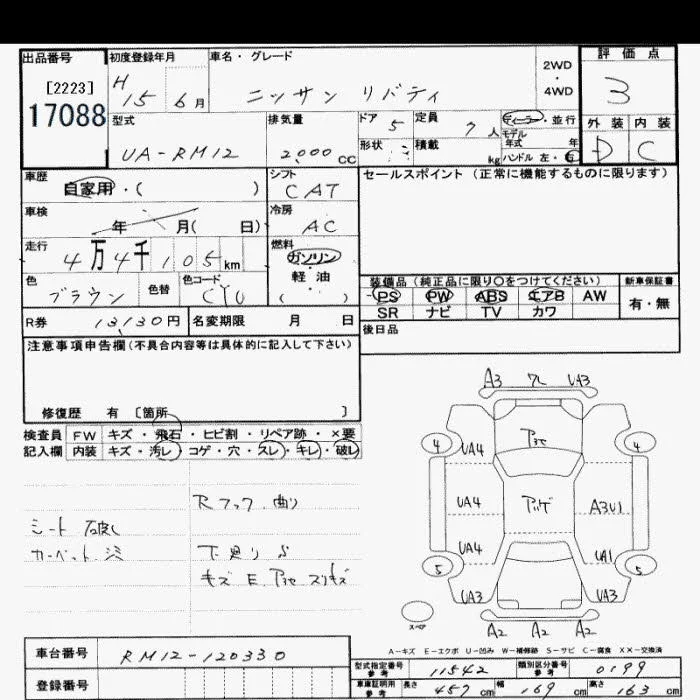 出品番号 初度登録年月 車名・グレード 2WD・4WD 評価点
[2223] H15 6月 ニッサン リバティ 3
17088
型式 排気量 ドア 5 定員 7人 ディーラー・並行
モデル年式 年 外装 内装
UA-RM12 2000cc 形状 積載 kg ハンドル 左・右 D C
車歴 自家用・( ) シフト CAT セールスポイント(正常に機能するものに限ります)
車検 年 月( 日) 冷房 AC
走行 4万4千105km 燃料 ガソリン 軽油 ( )
色 ブラウン 色替 色コード
装備品(純正品に限り○をつけてください) 新車保証書
PS PW ABS エアB AW 有・無
SR ナビ TV カワ
R券 13130円 名変期限 月 日 後日品
注意事項申告欄(不具合内容等は具体的に記入して下さい)
修復歴 有 [箇所 ]
検査員 FW キズ・飛石・ヒビ割・リペア跡・×要
記入欄 内装 キズ・汚レ・コゲ・穴・スレ・キレ・破レ
Rフック 曲り
シート 破レ
カーペット 下廻り S
キズ E
A3 UA3
4 UA4 4
UA4 A3U1
UA4 UA1
5 5
UA3 UA3
スペア A2 A2 A2
A−キズ E−エクボ U−凹み W−補修跡 S−サビ C−腐食 XX−交換済
車台番号 RM12-120330
登録番号
型式指定番号 参考 11542 類別区分番号 参考 0199
車庫証明用 参考 長さ 457cm 幅 169cm 高さ 163cm